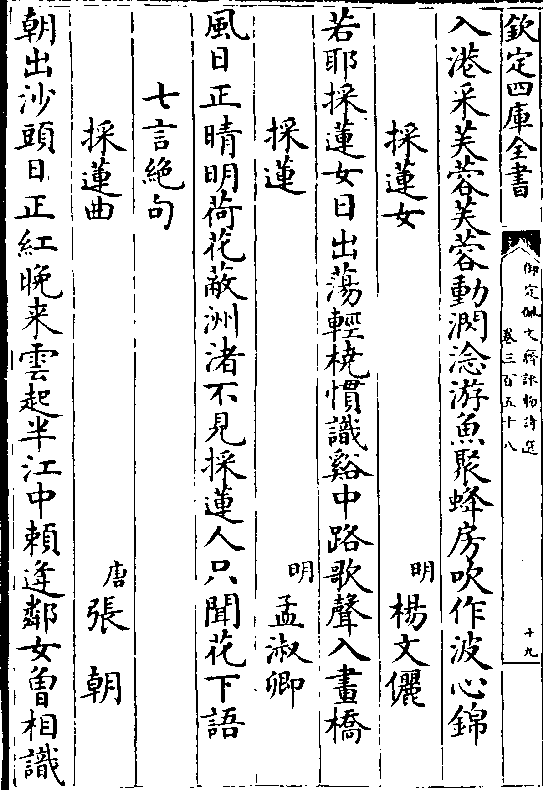 欽定四庫全書
御定佩文齋詠物詩選
卷三百五十八
十九
入港采芙蓉芙蓉動閃淰游魚聚蜂房吹作波心錦
採蓮女
明楊文儷
若耶採蓮女日出蕩輕橈慣識谿中路歌聲入畫橋
採蓮
明孟淑卿
風日正晴明荷花蔽洲渚不見採蓮人只聞花下語
七言絶句
採蓮曲
唐張朝
朝出沙頭日正紅晚来雲起半江中賴逢鄰女曽相識